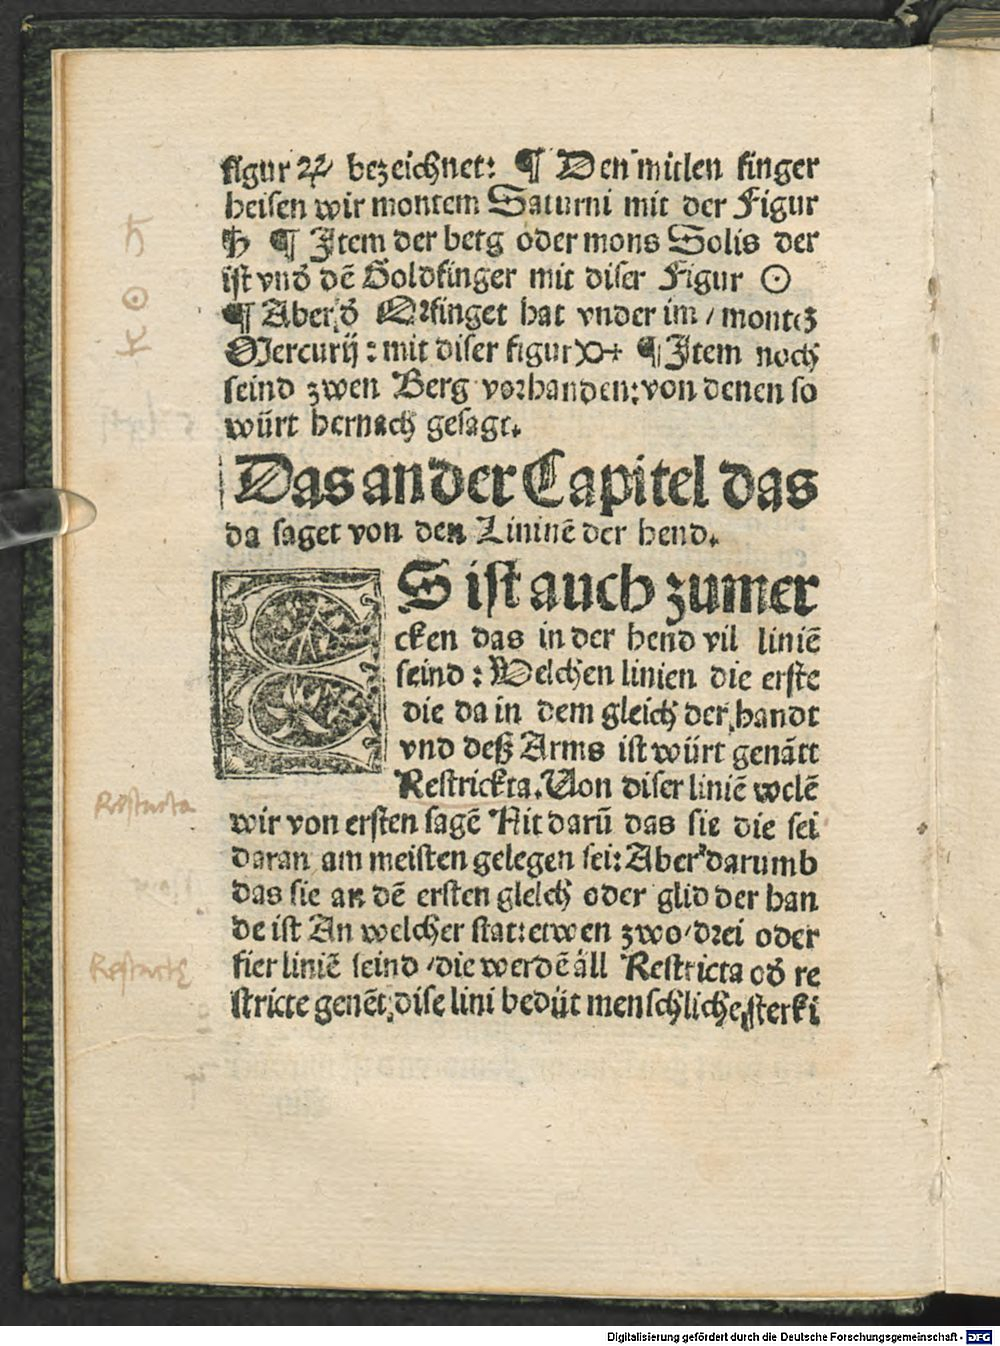 figur ♃ bezeichnet: ¶ Den mitlen finger
heisen wir montem Saturni mit der Figur
♄ ¶ Item der berg oder mons Solis der
ist vnd̛ dẽ Goldfinger mit diser Figur ☉
¶ Aber d̛ Orfinget hat vnder im / montez
Mercurij : mit diser figur ☿ ¶ Item noch
seind zwen Berg vorhanden: von denen so
würt hernach gesagt.
Das ander Capitel das
da saget von den Lininẽ der hend.
ES ist auch zumer
cken das in der hend vil liniẽ
seind : Welchen linien die erste
die da in dem gleich der handt
vnd deß Arms ist würt genãtt
Restrickta. Von diser liniẽ welẽ
wir von ersten sagẽ Nit darũ das sie die sei
daran am meisten gelegen sei: Aber darumb
das sie an dẽ ersten gleich oder glid der han
de ist An welcher stat: etwen zwo / drei oder
fier liniẽ seind / die werdẽ all Restricta od̛ re
stricte genẽt: dise lini bedüt menschliche sterki
♄
☉
Restricta
Restricte
Digitalisierung gefördert durch die Deutsche Forschungsgemeinschaft - DFG